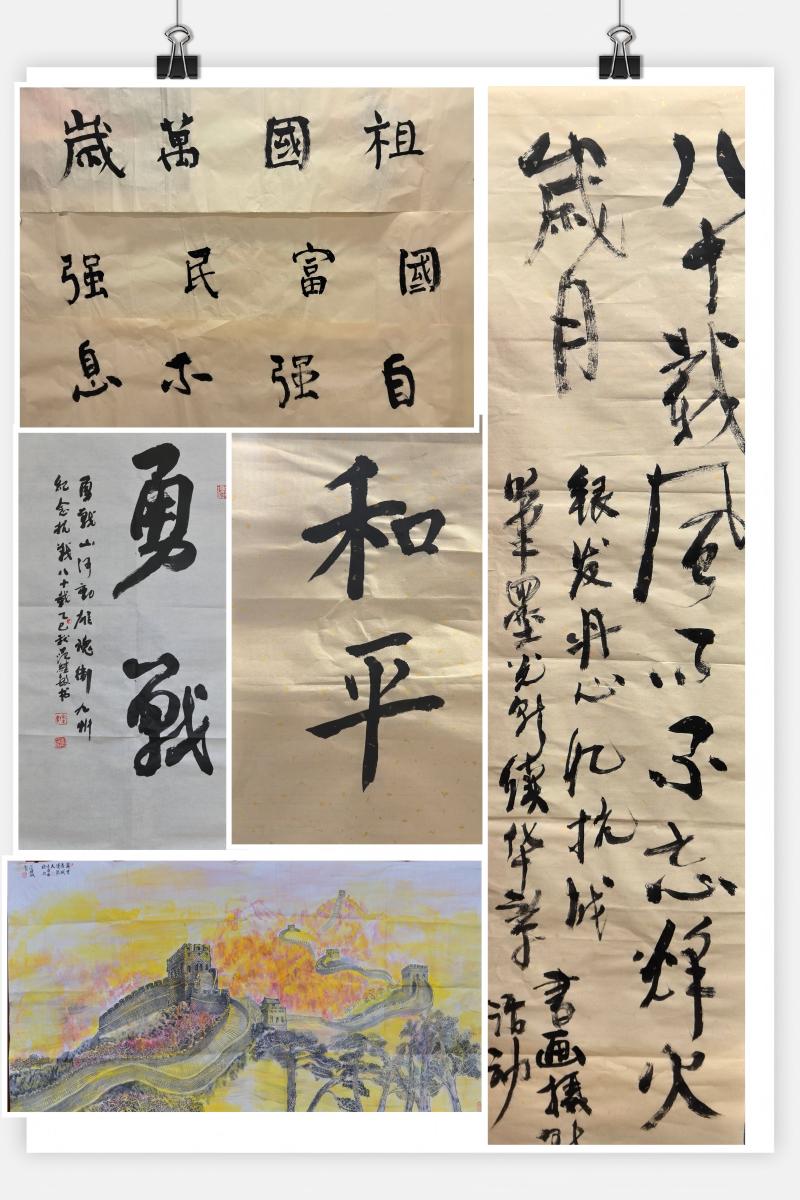 祖國萬歲
國富民强
自强不息
勇戰
勇戰山河動雄魂衛九州
紀念抗戰八十載乙巳秋
和平
八十载风雨不忘烽火
歲月
银发丹心忆抗战
筆墨光影續华章
書画摄影
活动